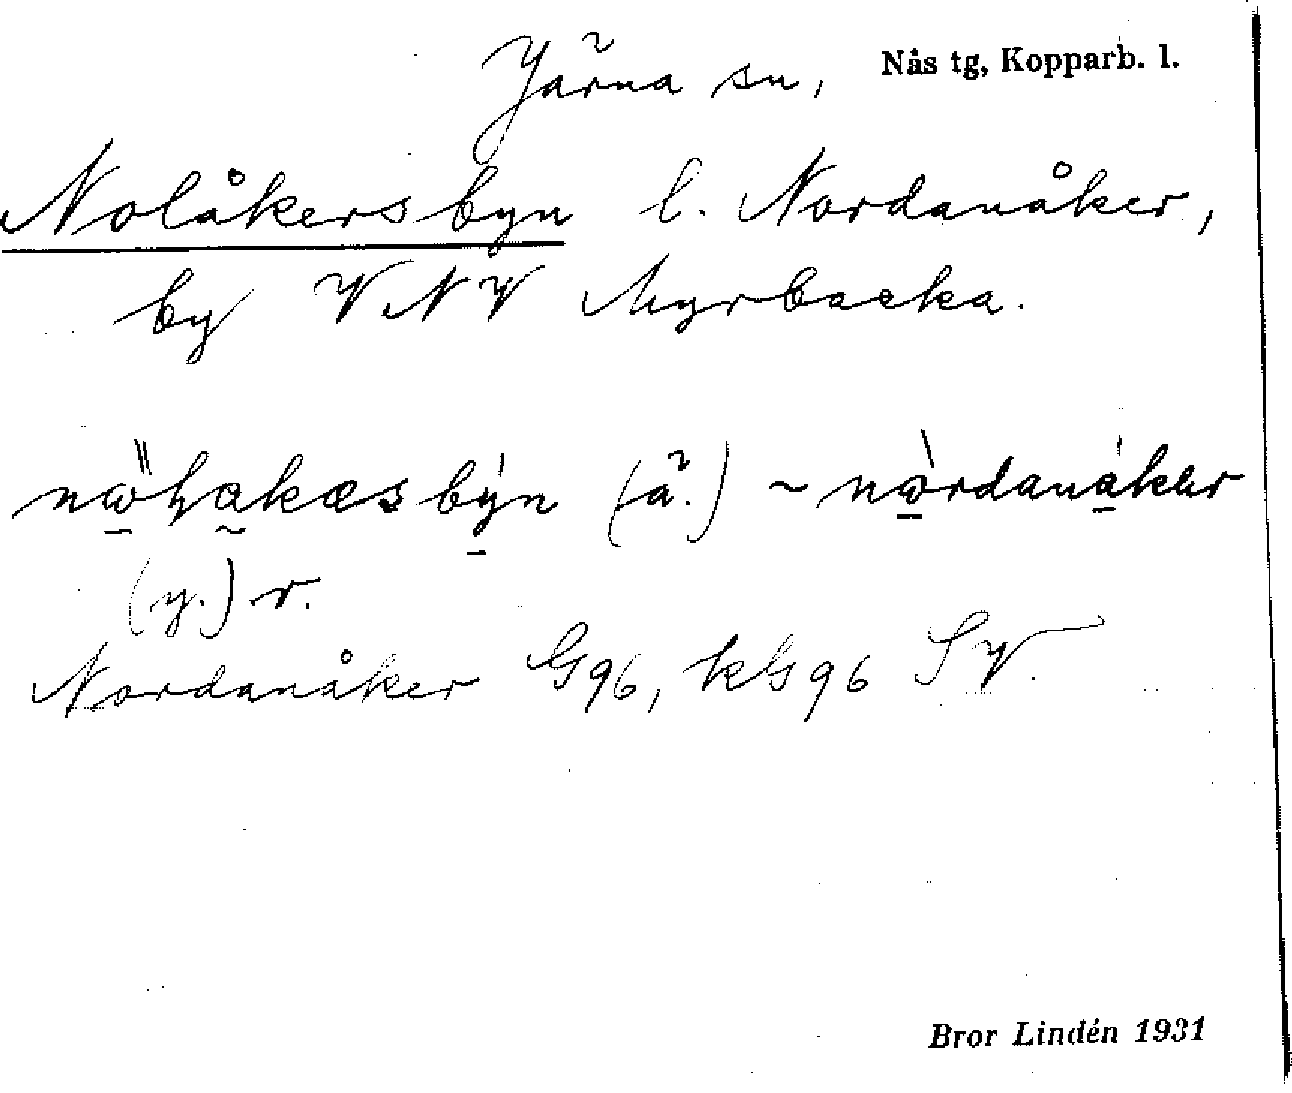 Järna sn, Nås tg, Kopparb. l.
Nolåkersbyn l. Nordanåker,
by VNV Myrbacka.
(ä.) ~
(y.) r.
Nordanåker G96, kG96 SV.
Bror Lindén 1931